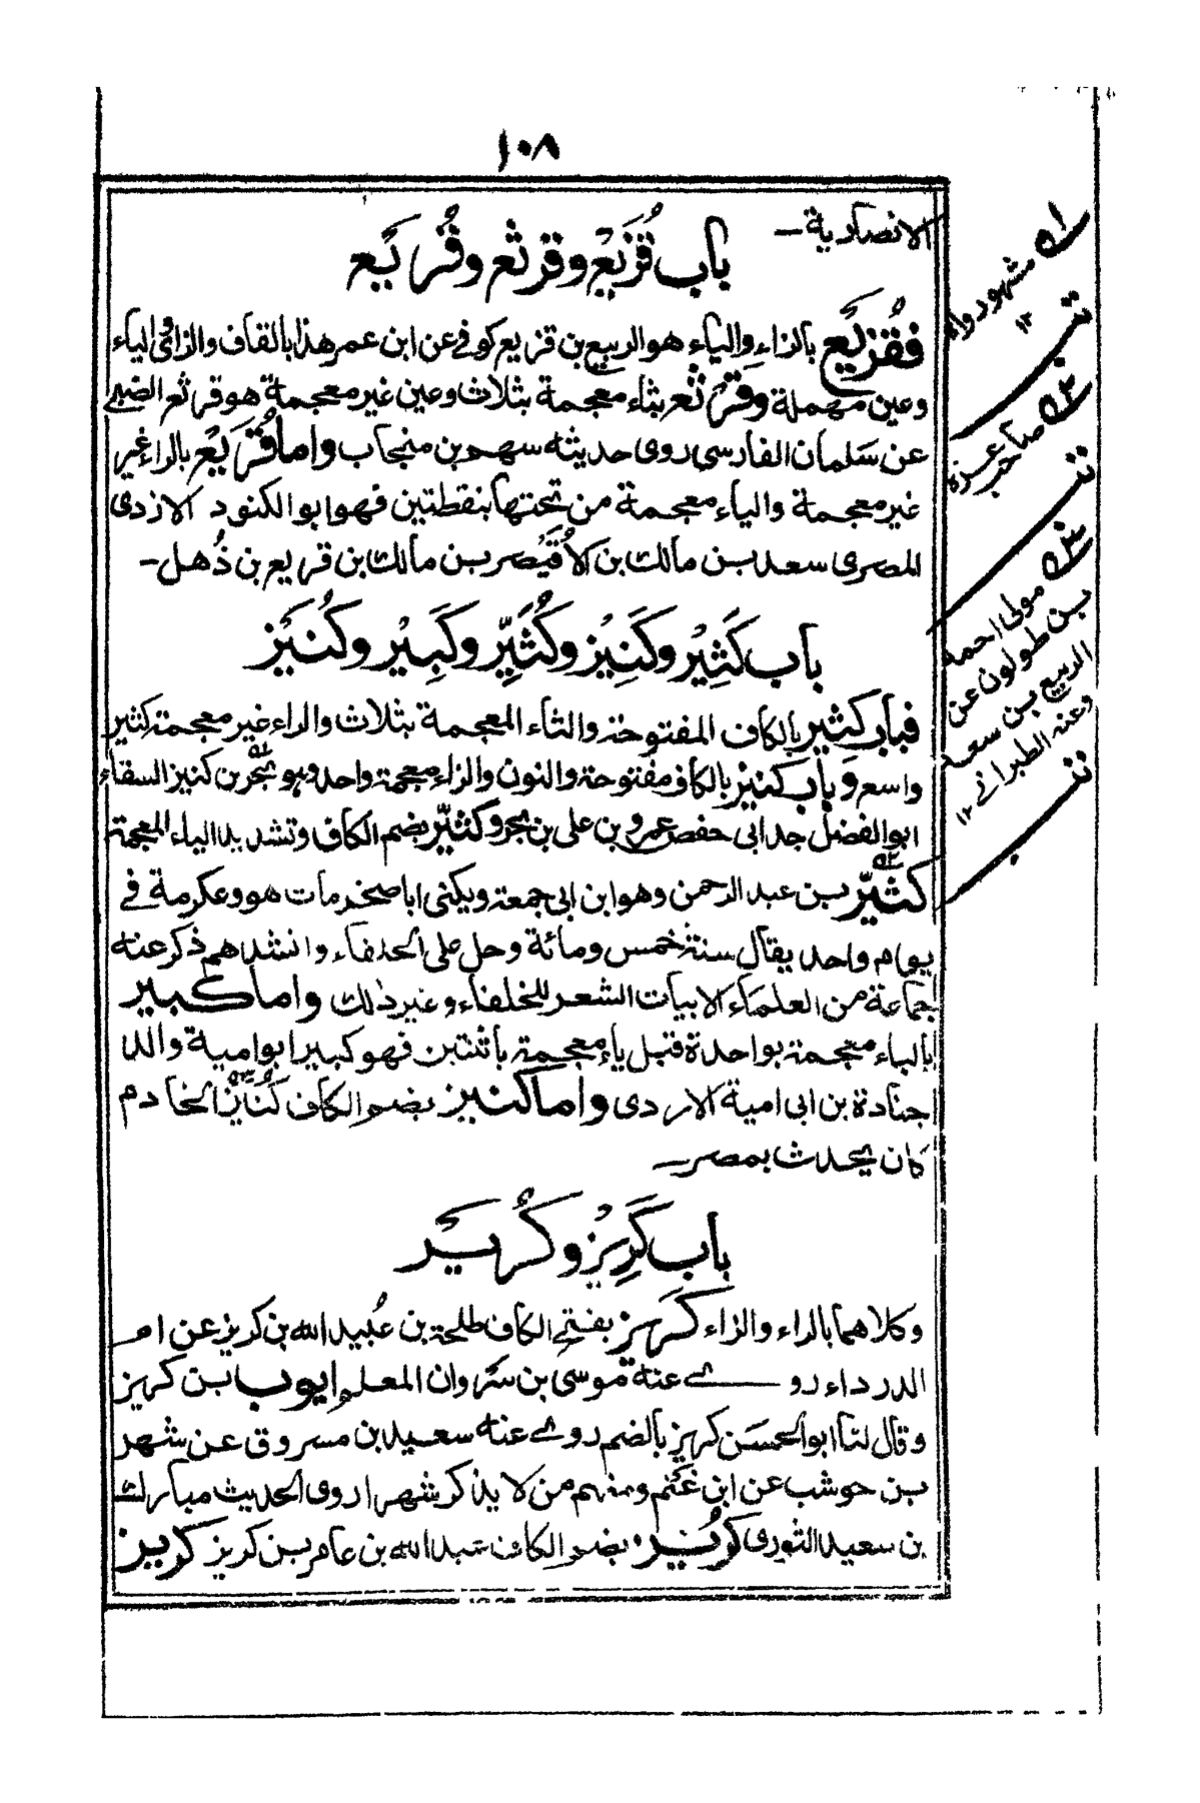 ١٠٨
الانصارية ـ
باب قُزَيْع وقرثع وقُرَيع
فقُزَيْع بالزاءِ والياءِ هو الربيع بن قزيع كوفى عن ابن عمر هذا بالقاف والزاى والياء
وعين مهملة وقَرْثع بثاء معجمة بثلاث وعين غير معجمة هو قرثع الضبى
عن سَلمان الفارسى روى حديثه سهم بن منجاب واما قُرَيْع بالراء غير
غير معجمة والياء معجمة من تحتها بنقطتين فهو ابو الكنود الازدى
المصرى سعد بن مالك بن الاُقَيْصر بن مالك بن قريع بن ذُهل ـ
باب كَثِيْر وكَنِيْز وكُثَيِّر وكَبِيْر وكُنَيْز
فباب كَثِير بالكاف المفتوحة والثاء المعجمة بثلاث والراء غير معجمة كثير
واسع وباب كنيز بالكاف مفتوحة والنون والزاء معجمة واحد وهو بحر بن كنيز السقاء
ابو الفضل جد ابى حفص عمرو بن على بن بحر وكثيّر بضم الكاف وتشديد الياء المعجمة
كثيّر بن عبد الرحمن وهو ابن ابى جمعة ويكنى ابا صخر مات هو وعكرمة فى
يوام واحد يقال سنة خمس ومائة وحل على الخلفاء وانشدهم ذكر عنه
جماعة من العلماء الابيات الشعر للخلفاء وغير ذلك واما كبير
بالباء معجمة بواحدة قبل ياء معجمة باثنتين فهو كبير ابو امية والد
جنادة بن ابى امية الازدى واما كنيز بضم الكاف كُنَيْز الخادم
كان يحدث بمصر ـ
باب كَرِيْز وكُرَيْز
وكلاهما بالراء والزاء كَرِيز بفتح الكاف طلحة بن عُبيد الله بن كريز عن ام
الدرداء روى عنه موسى بن سَروان المعلم ايوب بن كريز
وقال لنا ابو الحسَن كريز بالضم روى عنه سعيد بن مسروق عن شهر
بن حوشب عن ابن غَنْم ومنهم من لا يذكر شهرا روى الحديث مبارك
بن سعيد الثورى كُرَيز بضم الكاف عبد الله بن عامر بن كريز كريز
١ه مشهور رواه
١٢
٢ه صاحب عزة
٣ه مولى احمد
بن طولون عن
الربيع بن سعد
وعنه الطبرانى ١٢